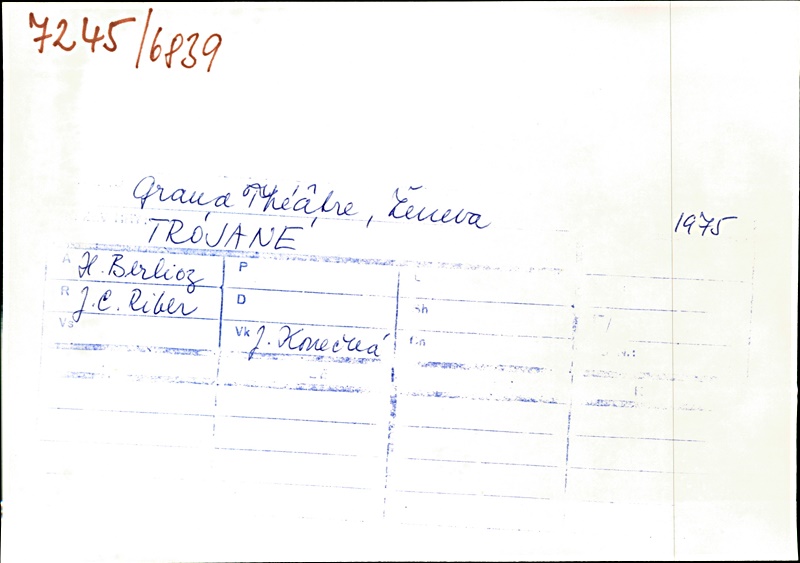 7245/6839
Grand Théâtre, Ženeva
TRÓJANÉ 1975
A H. Berlioz P
R J.C. Riber D
Vs Vk J. Konečná